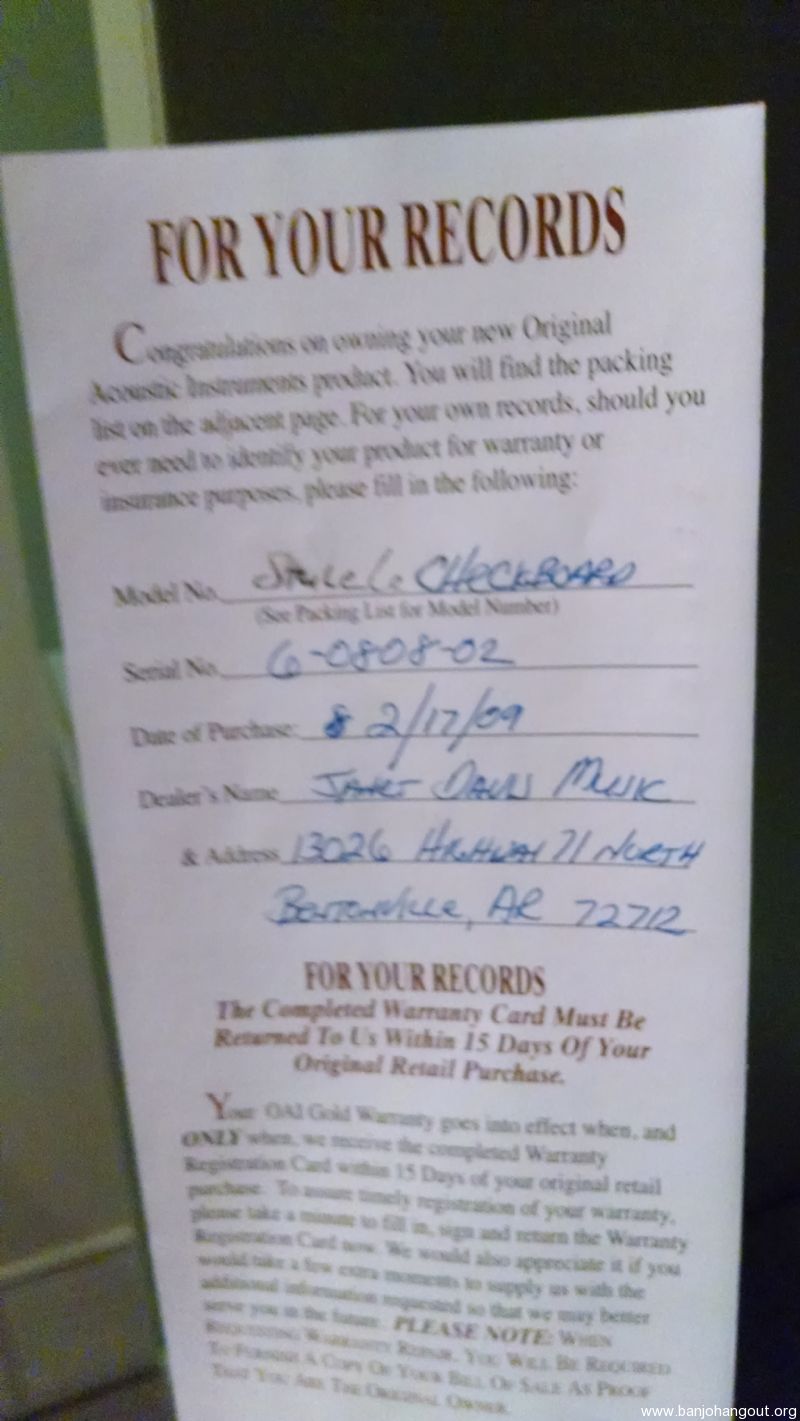 FOR YOUR RECORDS
Congratulations on owning your new Original
Acoustic Instruments product. You will find the packing
list on the adjacent page. For your own records, should you
ever need to identify your product for warranty or
insurance purposes, please fill in the following:
Model No. CHECKBOARD
(See Packing List for Model Number)
Serial No. 6-0808-02
Date of Purchase: 2/17/09
Dealer's Name Janet Davis Music
& Address 13026 Highway 71 North
Bentonville, AR 72712
FOR YOUR RECORDS
The Completed Warranty Card Must Be
Returned To Us Within 15 Days Of Your
Original Retail Purchase.
Your OAI Gold Warranty goes into effect when, and
ONLY when, we receive the completed Warranty
Registration Card within 15 Days of your original retail
purchase. To assure timely registration of your warranty,
please take a minute to fill in, sign and return the Warranty
Registration Card now. We would also appreciate it if you
would take a few extra moments to supply us with the
additional information requested so that we may better
serve you in the future. PLEASE NOTE: WHEN
REQUESTING WARRANTY REPAIR, YOU WILL BE REQUIRED
TO FURNISH A COPY OF YOUR BILL OF SALE AS PROOF
THAT YOU ARE THE ORIGINAL OWNER.
www.banjohangout.org